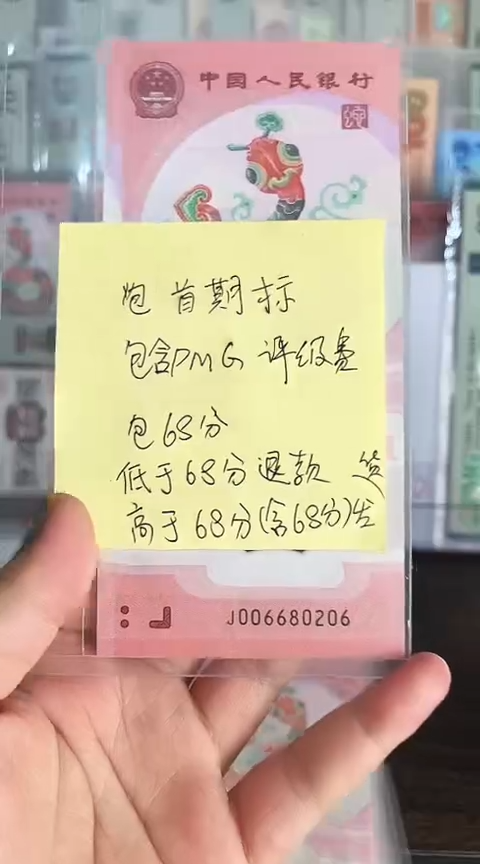 中国人民银行
包首期标
包含PMG评级费
包68分
低于68分退款 货
高于68分(含68分)发
J006680206